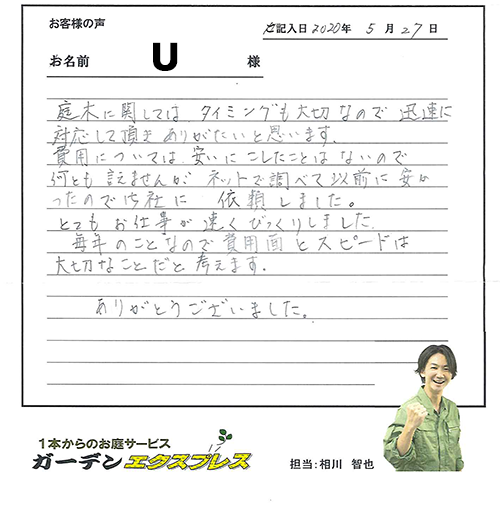 お客様の声
ご記入日 2020年 5月27日
お名前 U 様
庭木に関しては、タイミングも大切なので 迅速に
対応して頂き ありがたいと思います。
費用については、安いにこしたことはないので
何とも言えませんが、ネットで調べて以前に安か
ったので御社に 依頼しました。
とても お仕事が速くびっくりしました。
毎年のことなので費用面とスピードは
大切なことだと考えます。
ありがとうございました。
1本からのお庭サービス
ガーデンエクスプレス
担当:相川 智也